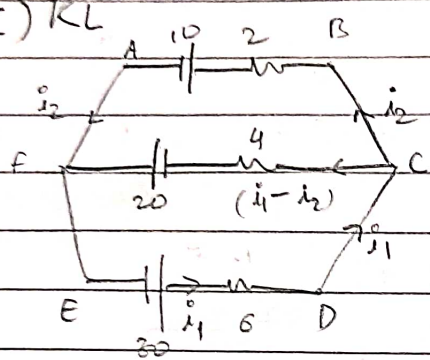 KL
10 2 B
A
i₂ i₂
4
F C
20 (i₁ - i₂)
i₁
E i₁ 6 D
30